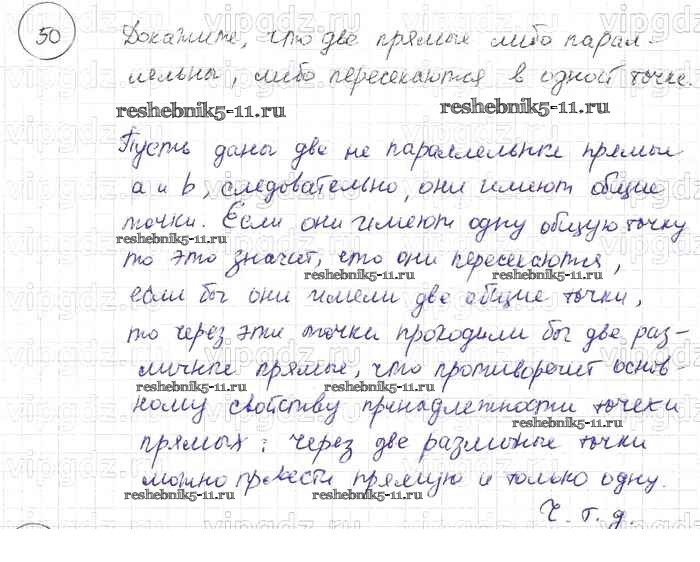 50 Докажите, что две прямые либо парал-
лельны, либо пересекаются в одной точке.
reshebnik5-11.ru reshebnik5-11.ru
Пусть даны две не параллельные прямые
a и b, следовательно, они имеют общие
точки. Если они имеют одну общую точку
reshebnik5-11.ru
то это значит, что они пересекаются,
reshebnik5-11.ru reshebnik5-11.ru
если бы они имели две общие точки,
то через эти точки проходили бы две раз-
reshebnik5-11.ru
личные прямые, что противоречит основ-
reshebnik5-11.ru reshebnik5-11.ru
ному свойству принадлежности точек и
reshebnik5-11.ru
прямых: через две различные точки
можно провести прямую и только одну.
reshebnik5-11.ru reshebnik5-11.ru
Ч. т. д.